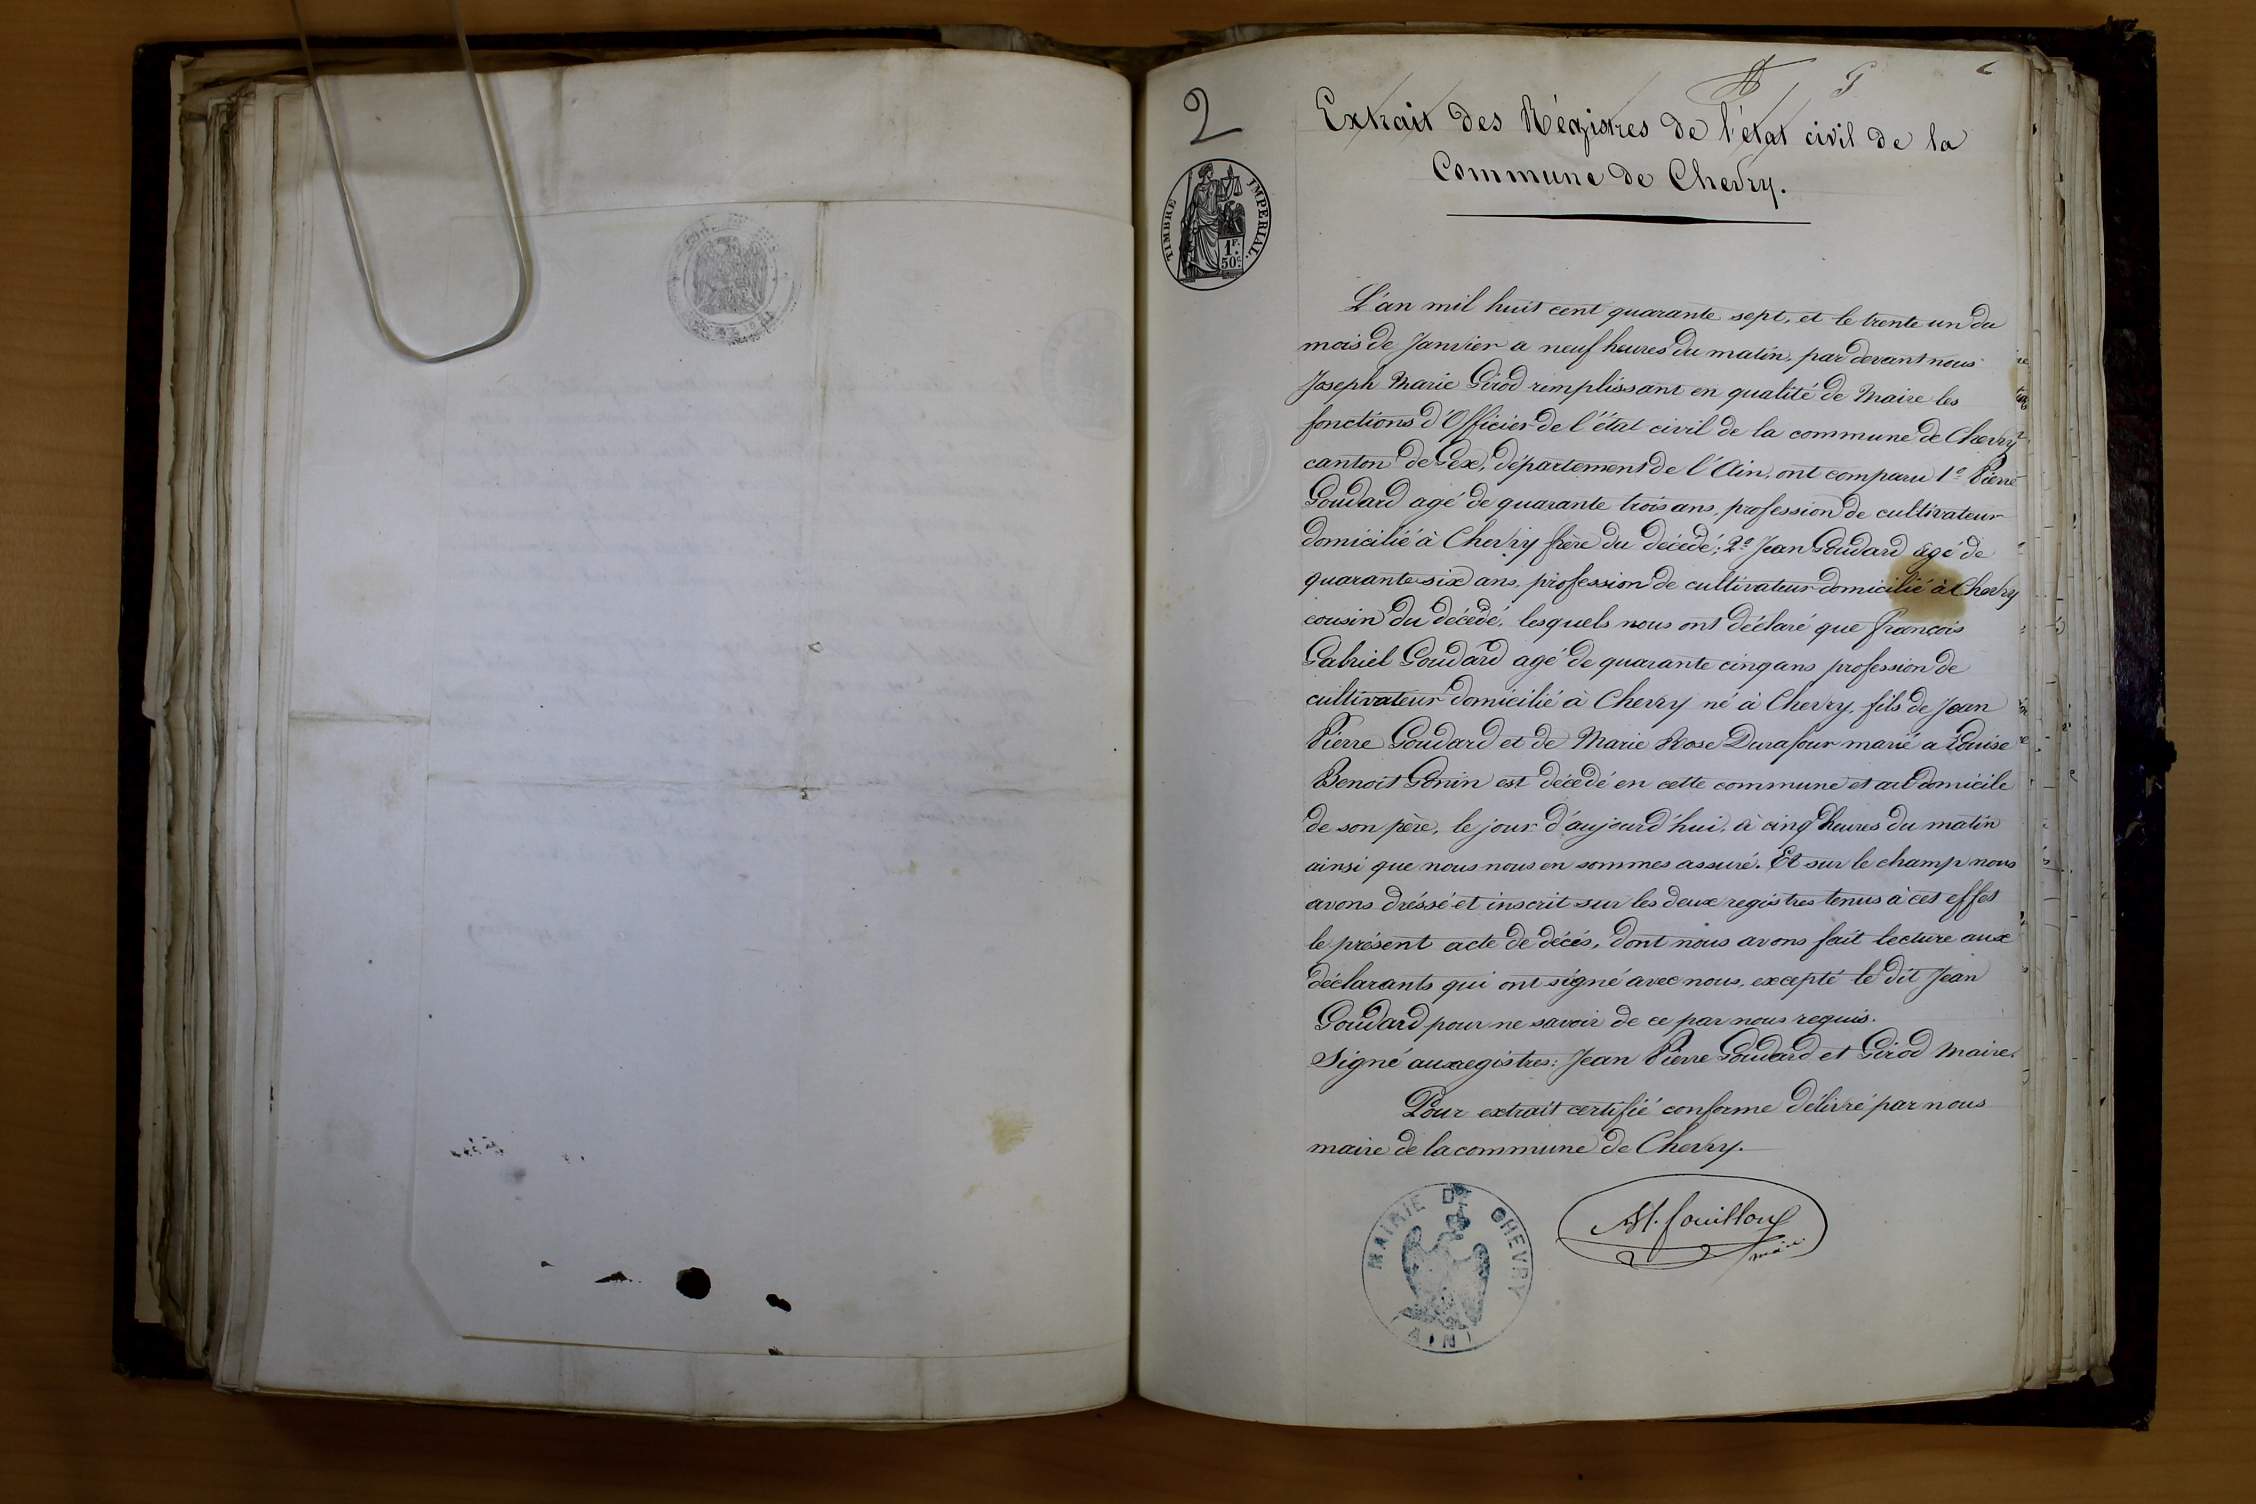 2
Extrait des Régistres de l'état civil de la
Commune de Chevry.
TIMBRE IMPERIAL.
1F.
50c.
L'an mil huit cent quarante sept, et le trente un du
mois de Janvier a neuf heures du matin, par devant nous
Joseph Marie Girod remplissant en qualité de Maire les
fonctions d'Officier de l'état civil de la commune de Chevry
canton de Gex, département de l'Ain, ont comparu 1º Pierre
Goudard agé de quarante trois ans, profession de cultivateur
domicilié à Chevry frère du décédé; 2º Jean Goudard agé de
quarante six ans, profession de cultivateur domicilié à Chevry
cousin du décédé, lesquels nous ont déclaré que françois
Gabriel Goudard agé de quarante cinq ans profession de
cultivateur domicilié à Chevry né à Chevry, fils de Jean
Pierre Goudard et de Marie Rose Durafour marié a Louise
Benoit Gonin est décédé en cette commune et au domicile
de son père, le jour d'aujourd'hui, à cinq heures du matin
ainsi que nous nous en sommes assuré. Et sur le champ nous
avons dréssé et inscrit sur les deux registres tenus à cet effet
le présent acte de décés, dont nous avons fait lecture aux
déclarants qui ont signé avec nous, excepté le dit Jean
Goudard pour ne savoir de ce par nous requis.
Signé aux registres: Jean Pierre Goudard et Girod Maire.
Pour extrait certifié conforme délivré par nous
maire de la commune de Chevry.
MAIRIE DE CHEVRY
(AIN)
maire